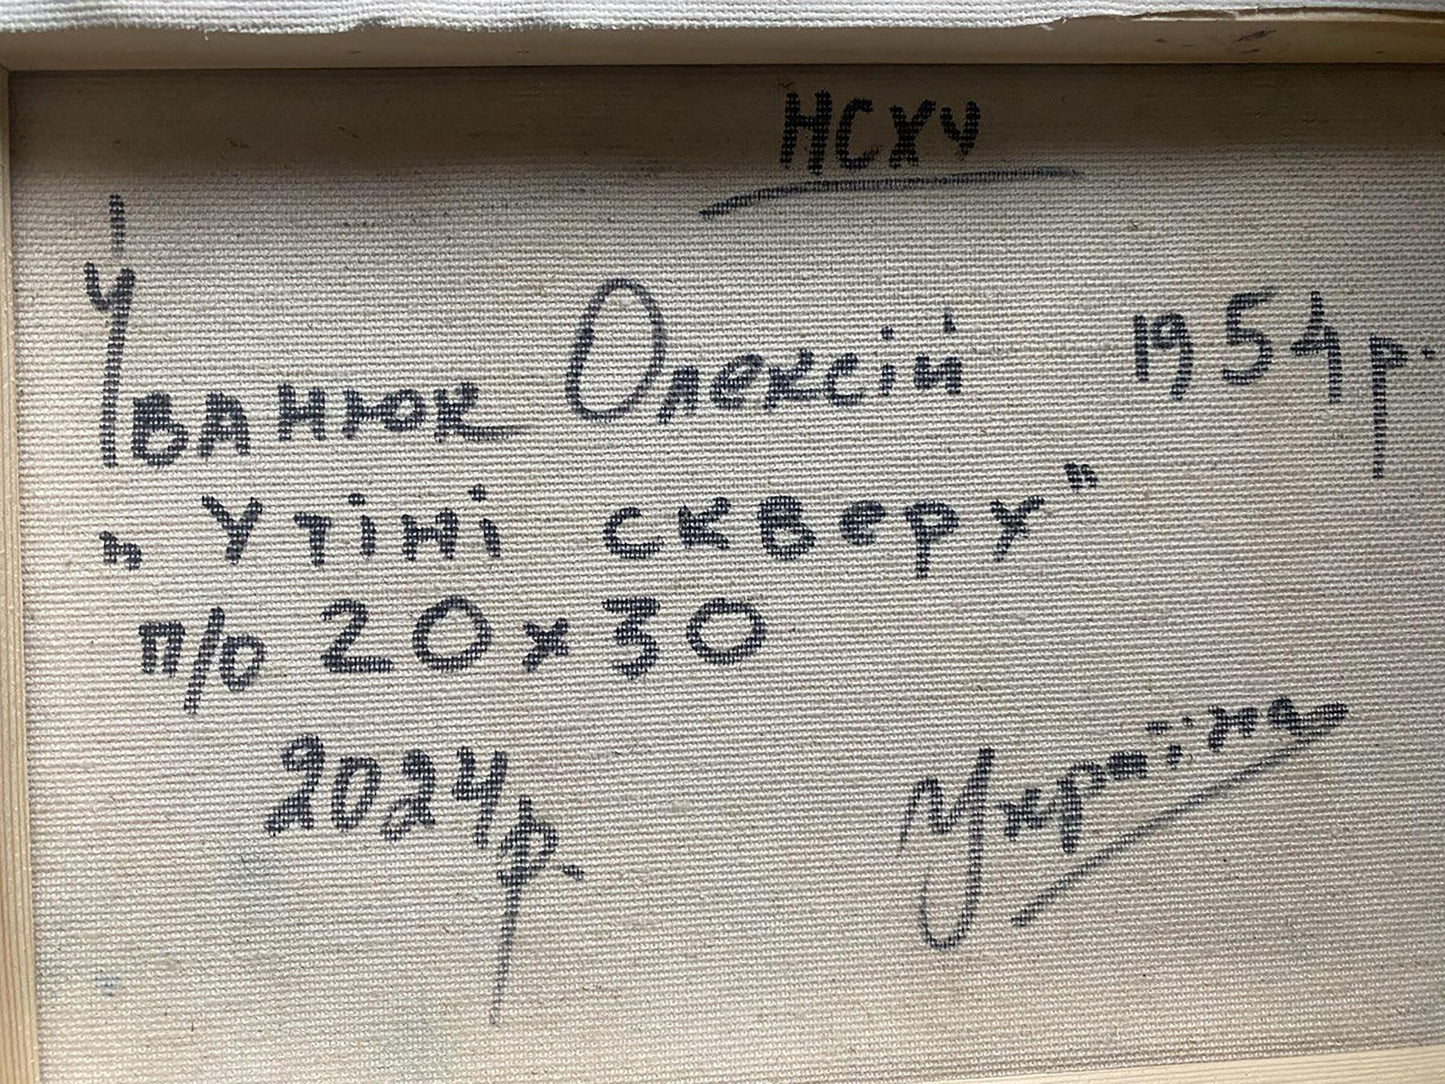 НСХУ
Іванюк Олексій 1954р.
„У тіні скверу"
п/о 20х30
2024р.
Україна